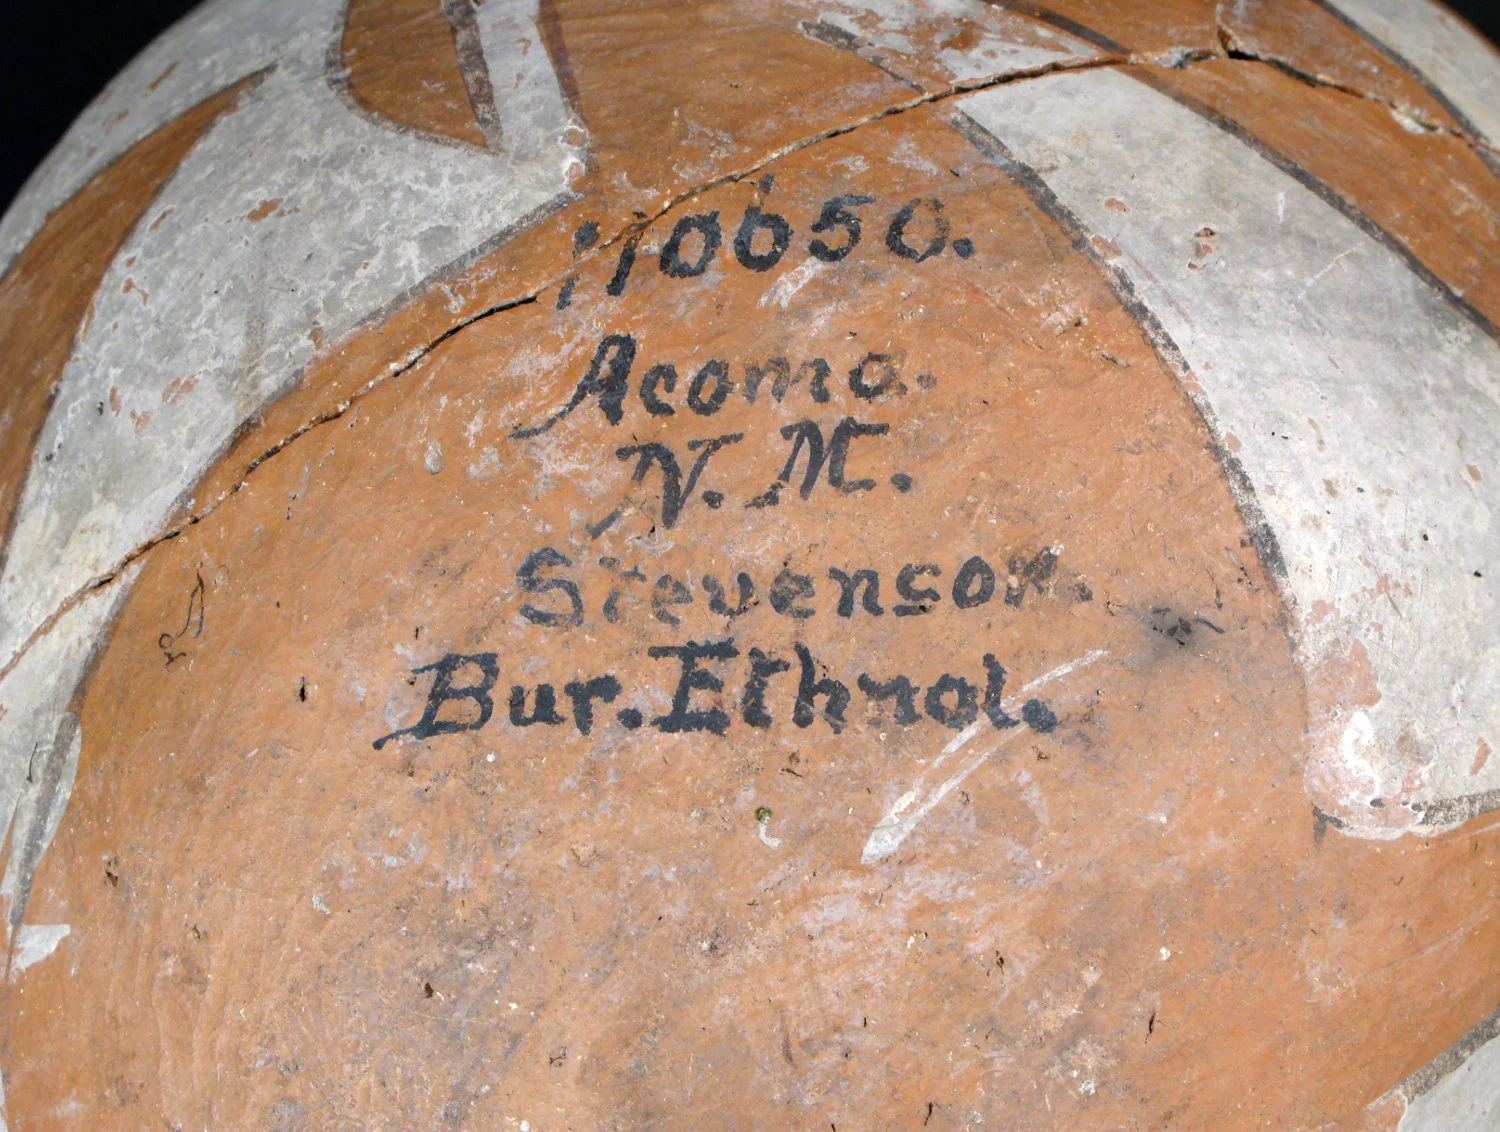 110650.
Acoma.
N. M.
Stevenson.
Bur. Ethnol.